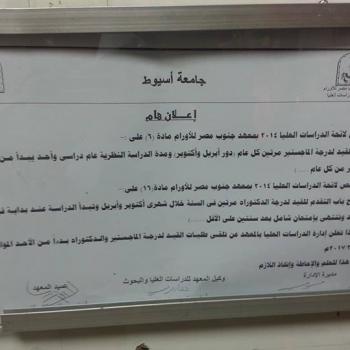 جامعة أسيوط
مصر للأورام
إعلان هام
لائحة الدراسات العليا ٢٠١٤ بمعهد جنوب مصر للأورام مادة (٦) على :-
للقيد لدرجة الماجستير مرتين كل عام (دور أبريل وأكتوبر) ومدة الدراسة النظرية عام دراسى وأحد يبدأ من
ر من كل عام .....
ص لائحة الدراسات العليا ٢٠١٤ بمعهد جنوب مصر للأورام مادة (١٦) على :-
ح باب التقدم للقيد لدرجة الدكتوراه مرتين فى السنة خلال شهرى أكتوبر وأبريل وتبدأ الدراسة عند بداية
وتنتهى بإمتحان شامل بعد سنتين على الأقل
ذا تعلن إدارة الدراسات العليا بالمعهد عن تلقى طلبات القيد لدرجة الماجستير والدكتوراه بدءاً من الأحد
٢٠١٧م
هذا للعلم والإحاطة وإتخاذ اللازم
مديرة الإدارة
وكيل المعهد للدراسات العليا والبحوث
عميد المعهد